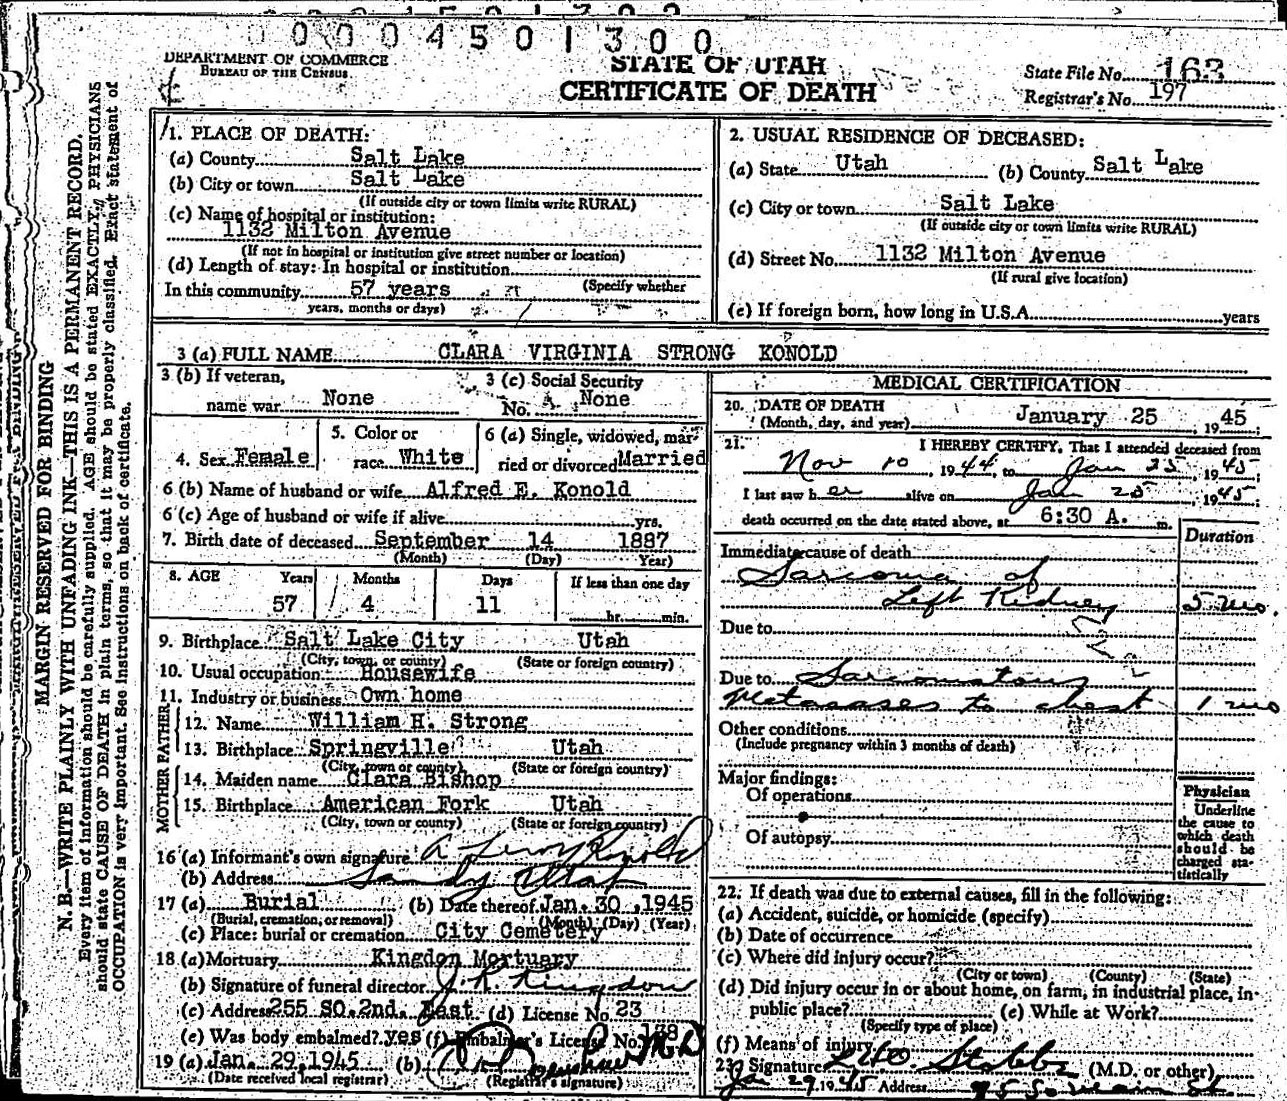 0004501300
DEPARTMENT OF COMMERCE
BUREAU OF THE CENSUS
STATE OF UTAH
CERTIFICATE OF DEATH
State File No. 163
Registrar's No. 197
MARGIN RESERVED FOR BINDING
N. B.—WRITE PLAINLY WITH UNFADING INK—THIS IS A PERMANENT RECORD.
Every item of information should be carefully supplied. AGE should be stated EXACTLY. PHYSICIANS
should state CAUSE OF DEATH in plain terms, so that it may be properly classified. Exact statement of
OCCUPATION is very important. See instructions on back of certificate.
1. PLACE OF DEATH:
(a) County Salt Lake
(b) City or town Salt Lake
(If outside city or town limits write RURAL)
(c) Name of hospital or institution:
1132 Milton Avenue
(If not in hospital or institution give street number or location)
(d) Length of stay: In hospital or institution
(Specify whether
In this community 57 years
years, months or days)
2. USUAL RESIDENCE OF DECEASED:
(a) State Utah (b) County Salt Lake
(c) City or town Salt Lake
(If outside city or town limits write RURAL)
(d) Street No. 1132 Milton Avenue
(If rural give location)
(e) If foreign born, how long in U.S.A. years
3 (a) FULL NAME CLARA VIRGINIA STRONG KONOLD
3 (b) If veteran,
name war None
3 (c) Social Security
No. None
4. Sex Female
5. Color or
race White
6 (a) Single, widowed, mar-
ried or divorced Married
6 (b) Name of husband or wife Alfred E. Konold
6 (c) Age of husband or wife if alive yrs.
7. Birth date of deceased September 14 1887
(Month) (Day) Year)
8. AGE Years Months Days If less than one day
57 4 11 hr. min.
9. Birthplace Salt Lake City Utah
(City, town, or county) (State or foreign country)
10. Usual occupation Housewife
11. Industry or business Own home
FATHER
12. Name William H. Strong
13. Birthplace Springville Utah
(City, town or county) (State or foreign country)
MOTHER
14. Maiden name Clara Bishop
15. Birthplace American Fork Utah
(City, town or county) (State or foreign country)
16 (a) Informant's own signature A Leroy Konold
(b) Address Sandy Utah
17 (a) Burial (b) Date thereof Jan. 30, 1945
(Burial, cremation, or removal) (Month) (Day) (Year)
(c) Place: burial or cremation City Cemetery
18 (a) Mortuary Kingdon Mortuary
(b) Signature of funeral director J. R. Kingdon
(c) Address 255 SO. 2nd. East (d) License No. 23
(e) Was body embalmed? yes (f) Embalmer's License No.
19 (a) Jan. 29, 1945 (b) M D
(Date received local registrar) (Registrar's signature)
MEDICAL CERTIFICATION
20. DATE OF DEATH
(Month, day, and year) January 25, 1945
21. I HEREBY CERTIFY, That I attended deceased from
Nov 10, 1944, to Jan 25, 1945
I last saw her alive on Jan 25 1945
death occurred on the date stated above, at 6:30 A. m.
Duration
Immediate cause of death
Sarcoma of
Left Kidney 5 mo.
Due to
Due to Sarcomatous
Metastases to chest 1 mo
Other conditions
(Include pregnancy within 3 months of death)
Major findings:
Of operations
Of autopsy
Physician
Underline
the cause to
which death
should be
charged sta-
tistically
22. If death was due to external causes, fill in the following:
(a) Accident, suicide, or homicide (specify)
(b) Date of occurrence
(c) Where did injury occur?
(City or town) (County) (State)
(d) Did injury occur in or about home, on farm, in industrial place, in
public place? (e) While at Work?
(Specify type of place)
(f) Means of injury
23) Signature Stobbe (M.D. or other)
Jan 29, 1945 Address